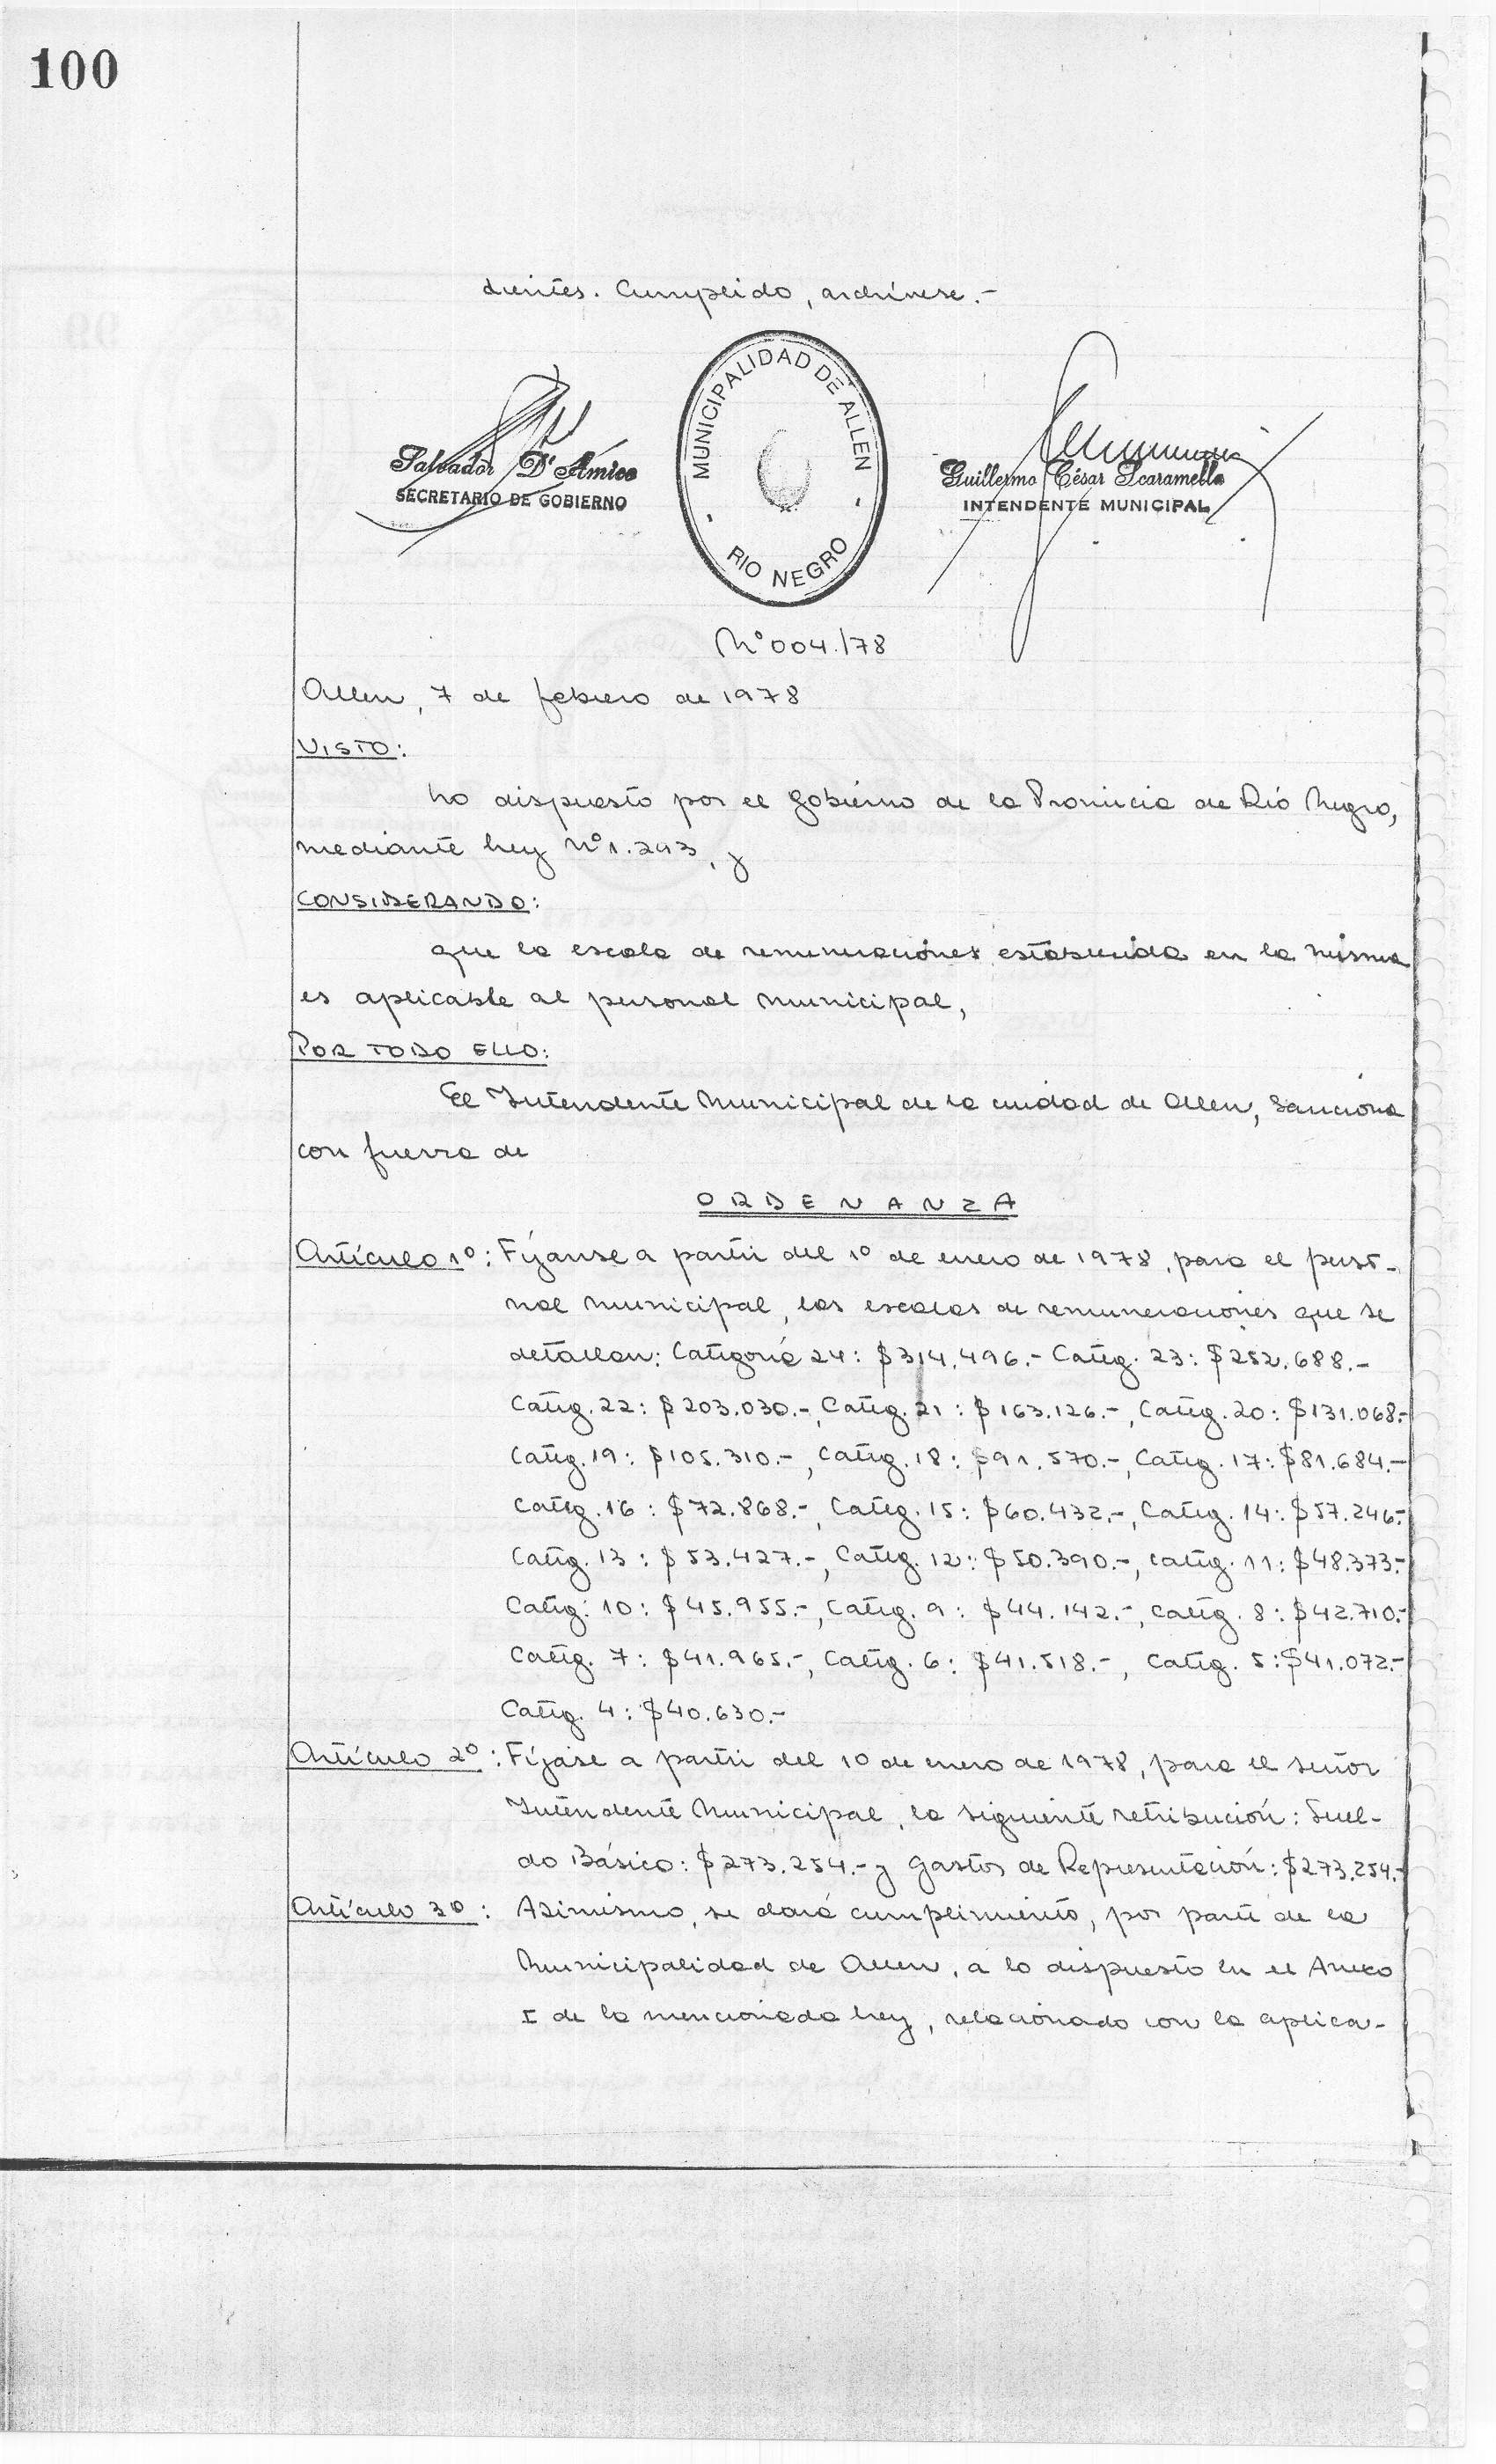 100
dientes. Cumplido, archívese.-
Salvador D'Amico
SECRETARIO DE GOBIERNO
MUNICIPALIDAD DE ALLEN
RIO NEGRO
Guillermo César Scaramella
INTENDENTE MUNICIPAL
Nº 004./78
Allen, 7 de febrero de 1978
VISTO:
Lo dispuesto por el Gobierno de la Provincia de Río Negro,
mediante Ley Nº 1.243, y
CONSIDERANDO:
que la escala de remuneraciones establecida en la misma
es aplicable al personal municipal,
POR TODO ELLO:
El Intendente Municipal de la ciudad de Allen, Sanciona
con fuerza de
ORDENANZA
Artículo 1º: Fíjanse a partir del 1º de enero de 1978, para el perso-
nal municipal, las escalas de remuneraciones que se
detallan: Categoría 24: $314.496.- Categ. 23: $252.688.-
Categ. 22: $203.030.-, Categ. 21: $163.126.-, Categ. 20: $131.068.-
Categ. 19: $105.310.-, Categ. 18: $91.570.-, Categ. 17: $81.684.-
Categ. 16: $72.868.-, Categ. 15: $60.432.-, Categ. 14: $57.246.-
Categ. 13: $53.427.-, Categ. 12: $50.390.-, Categ. 11: $48.373.-
Categ. 10: $45.955.-, Categ. 9: $44.142.-, Categ. 8: $42.710.-
Categ. 7: $41.965.-, Categ. 6: $41.518.-, Categ. 5: $41.072.-
Categ. 4: $40.630.-
Artículo 2º: Fíjase a partir del 1º de enero de 1978, para el señor
Intendente Municipal, la siguiente retribución: Suel-
do Básico: $273.254.- y Gastos de Representación: $273.254.-
Artículo 3º: Asimismo, se dará cumplimiento, por parte de la
Municipalidad de Allen, a lo dispuesto en el Anexo
I de la mencionada Ley, relacionado con la aplica-